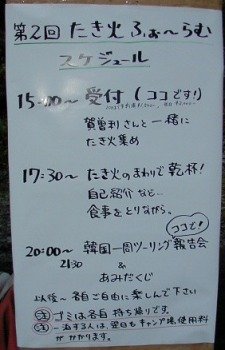 第2回 たき火 ふぉ〜らむ
スケジュール
15:00〜 受付 (ココです!)
賀曽利さんと一緒に
たき火集め
17:30〜 たき火のまわりで乾杯!
自己紹介など…
食事をとりながら。
ココで!
20:00〜 韓国一周ツーリング報告会
21:30 &
あみだくじ
以後〜各自ご自由に楽しんで下さい
注 ゴミは各自 持ち帰りです。
注 一泊する人は、翌日もキャンプ場使用料
がかかります。